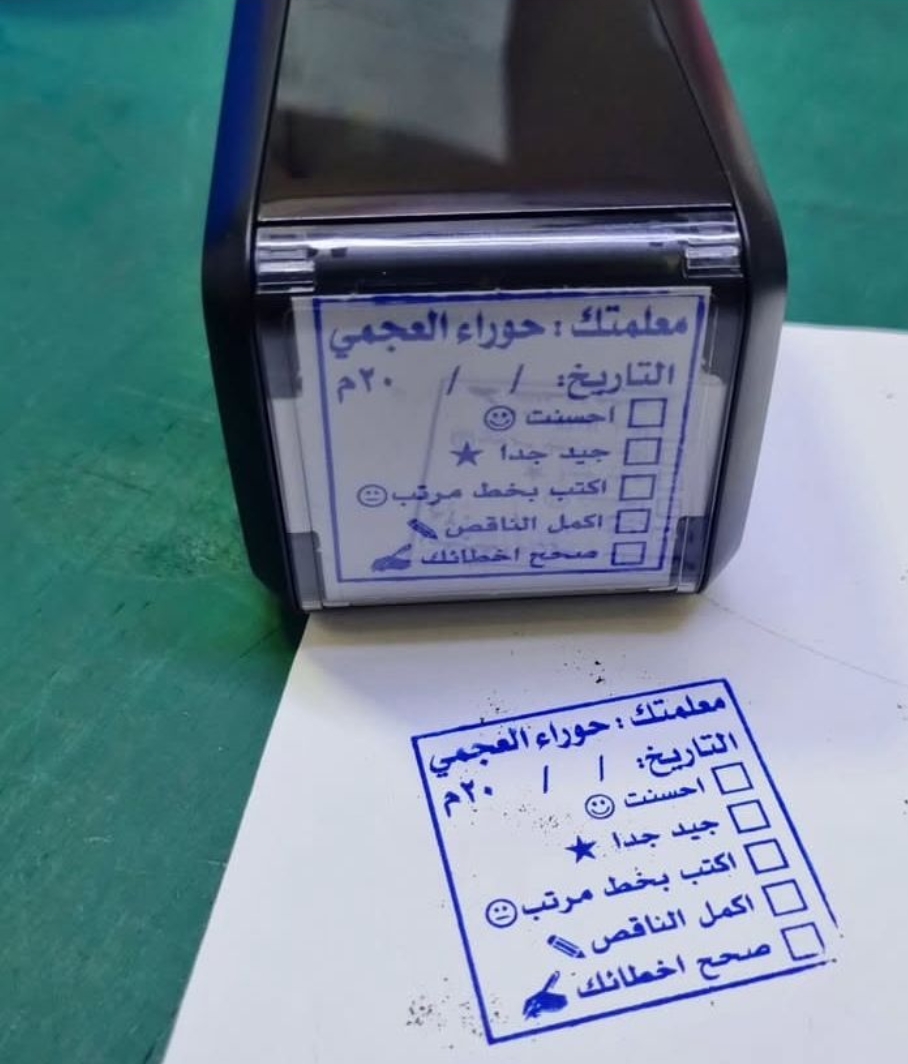 معلمتك : حوراء العجمي
التاريخ: / / ٢٠م
احسنت
جيد جدا
اكتب بخط مرتب
اكمل الناقص
صحح اخطائك
معلمتك : حوراء العجمي
التاريخ: / / ٢٠م
احسنت
جيد جدا
اكتب بخط مرتب
اكمل الناقص
صحح اخطائك